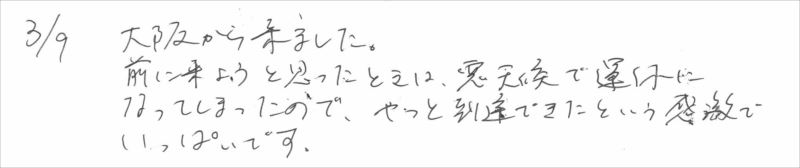 3/9 大阪から来ました。
前に来ようと思ったときは、悪天候で運休に
なってしまったので、やっと到達できたという感激で
いっぱいです。